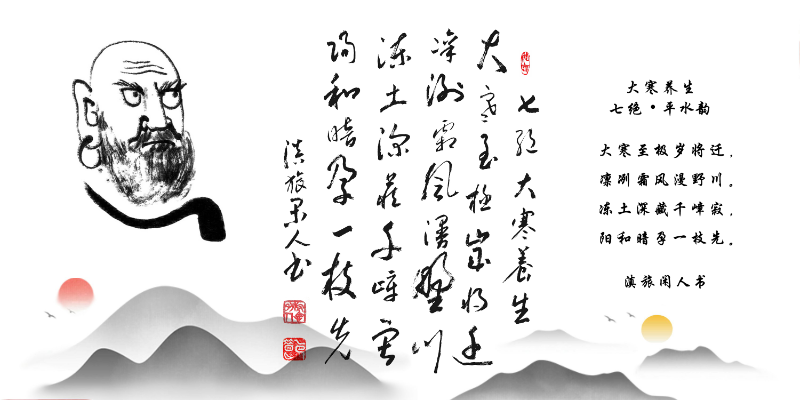 七绝大寒养生
大寒至极岁将迁
凛冽霜风漫野川
冻土深藏千嶂寂
阳和暗孕一枝先
滇旅闲人书
大寒养生
七绝·平水韵
大寒至极岁将迁，
凛冽霜风漫野川。
冻土深藏千嶂寂，
阳和暗孕一枝先。
滇旅闲人书